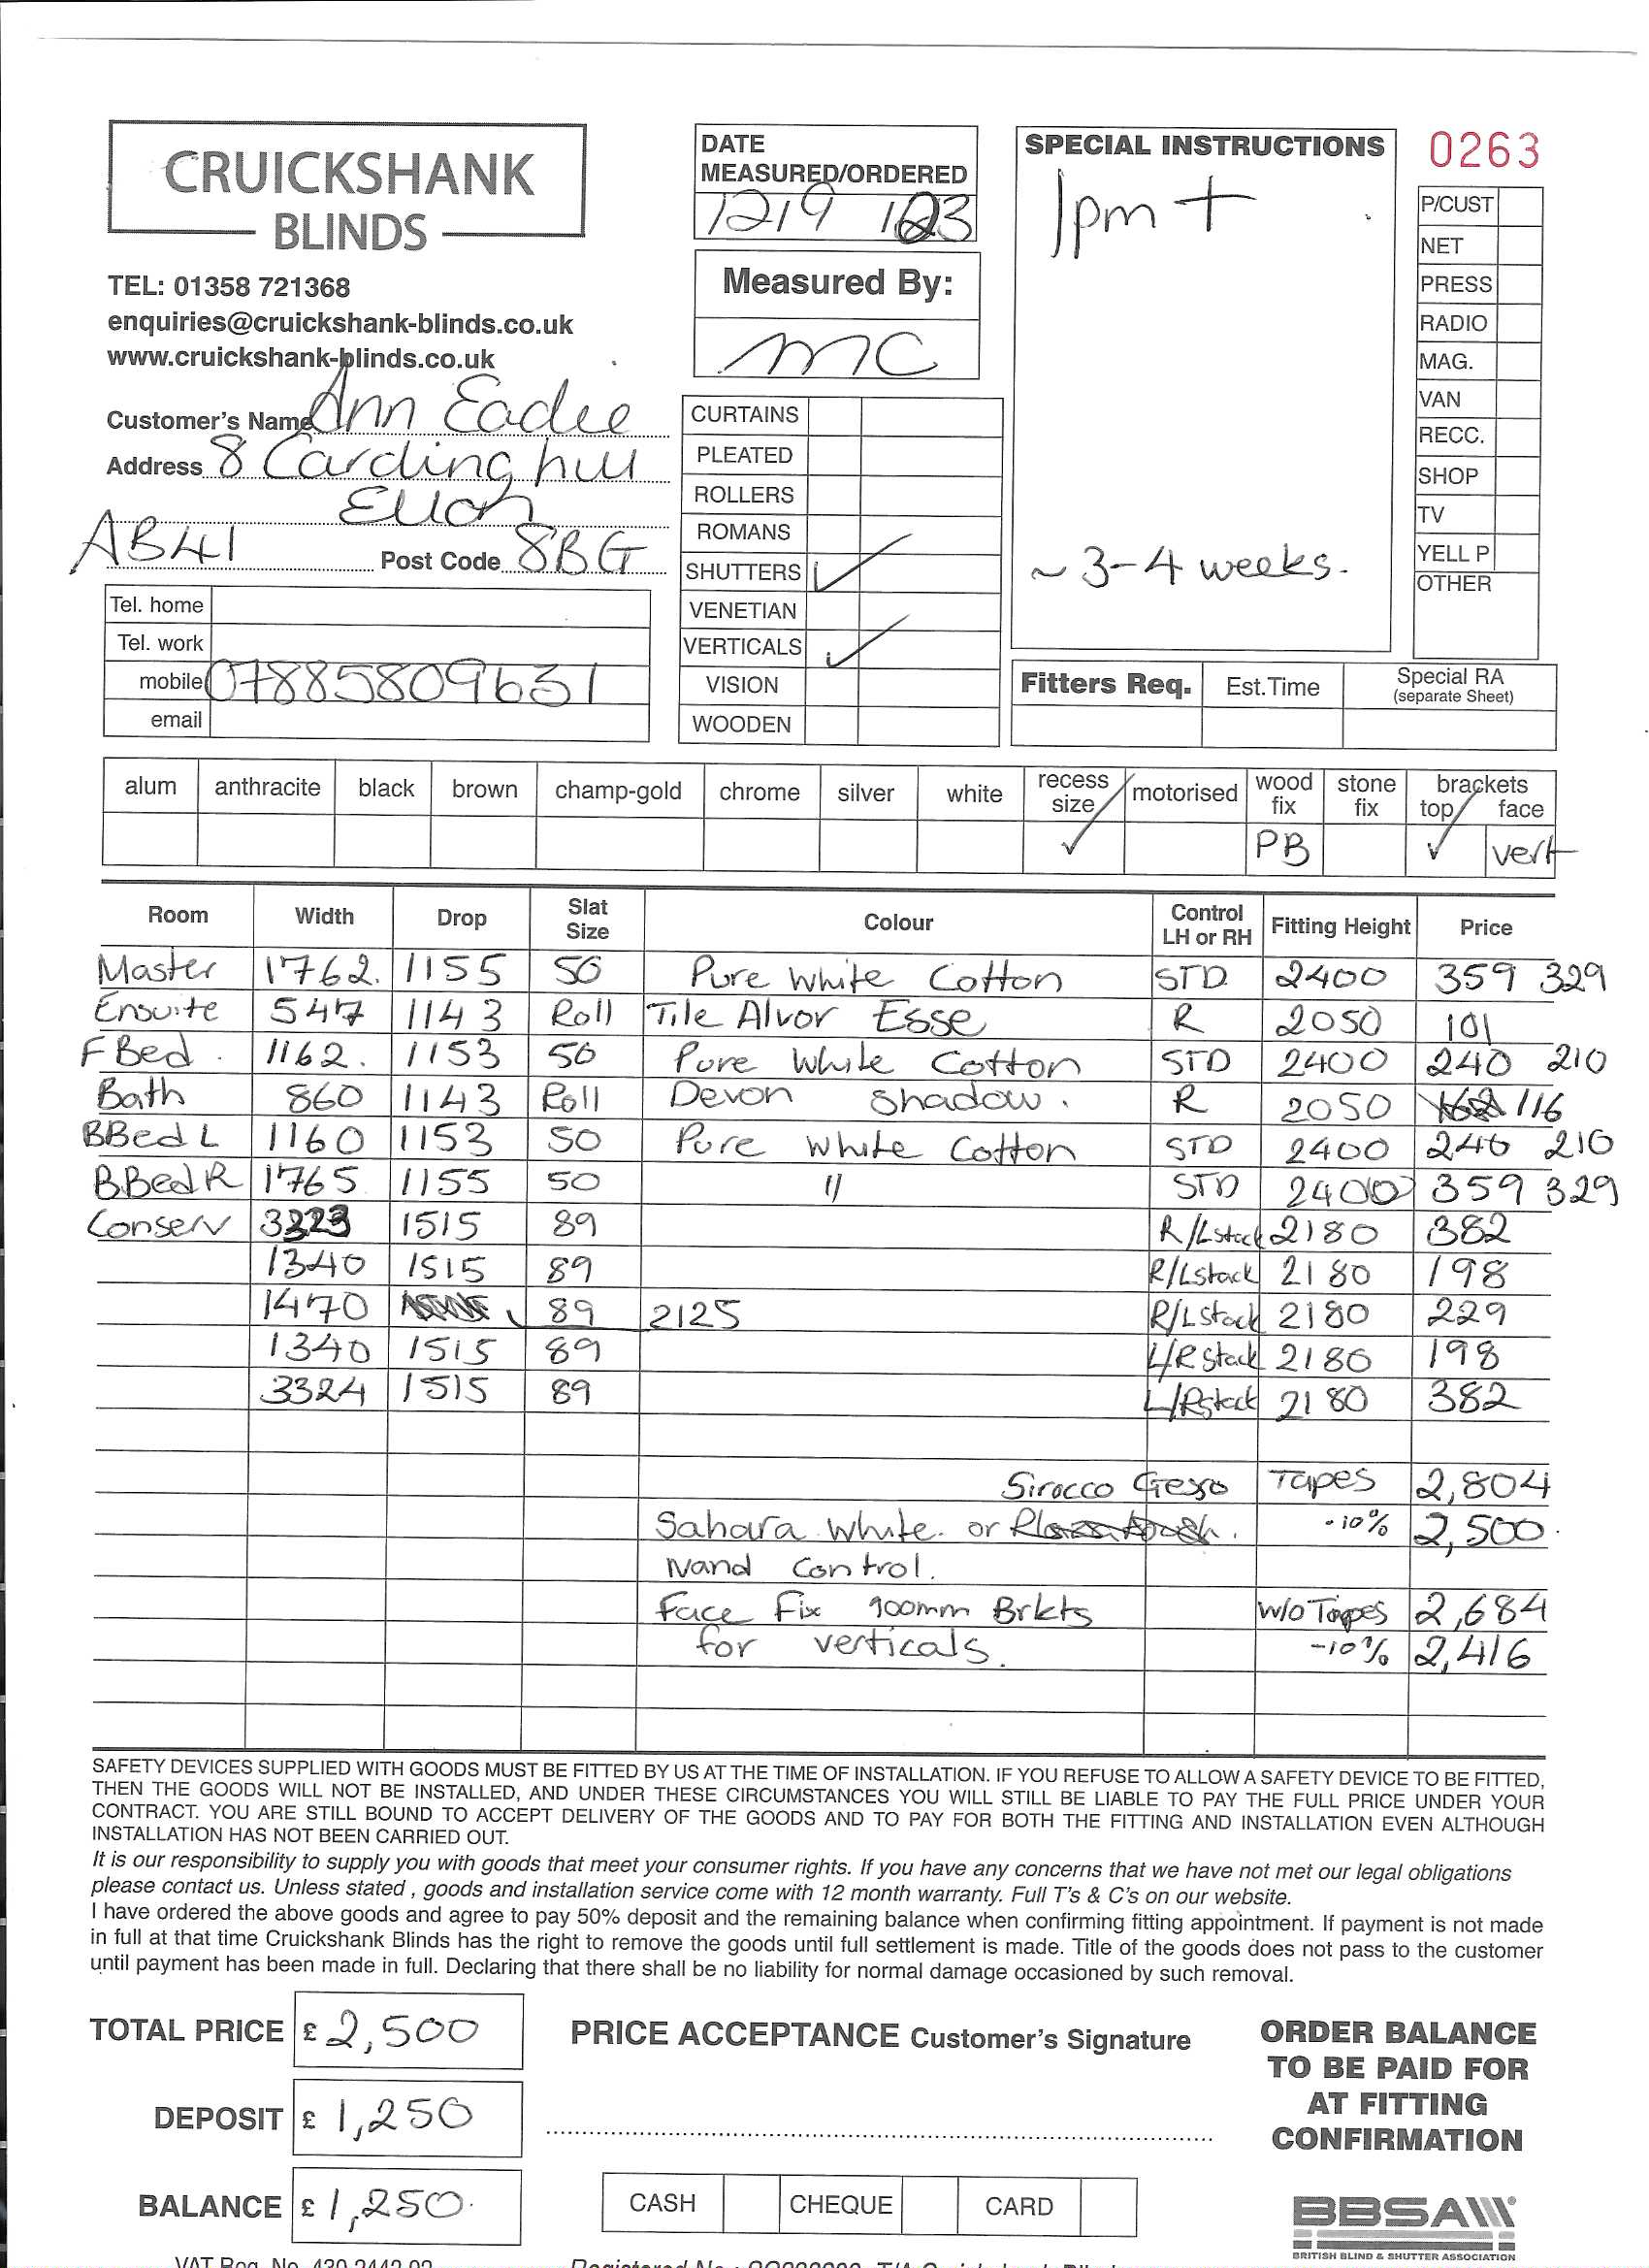 CRUICKSHANK
BLINDS
TEL: 01358 721368
enquiries@cruickshank-blinds.co.uk
www.cruickshank-blinds.co.uk
Customer's Name Ann Eadie
Address 8 Carding hill
Ellon
AB41 Post Code 8BG
Tel. home
Tel. work
mobile 07885809631
email
DATE
MEASURED/ORDERED
12/9/23
Measured By:
MC
CURTAINS
PLEATED
ROLLERS
ROMANS
SHUTTERS ✓
VENETIAN
VERTICALS ✓
VISION
WOODEN
SPECIAL INSTRUCTIONS
1pm +
~ 3-4 weeks.
0263
P/CUST
NET
PRESS
RADIO
MAG.
VAN
RECC.
SHOP
TV
YELL P
OTHER
Fitters Req. Est.Time Special RA
(separate Sheet)
alum anthracite black brown champ-gold chrome silver white recess size motorised wood fix stone fix brackets top face
✓ PB ✓ vert
Room Width Drop Slat Size Colour Control LH or RH Fitting Height Price
Master 1762. 1155 50 Pure White Cotton STD 2400 359 329
Ensuite 547 1143 Roll Tile Alvor Esse R 2050 101
F Bed 1162. 1153 50 Pure White Cotton STD 2400 240 210
Bath 860 1143 Roll Devon Shadow. R 2050 116
BBed L 1160 1153 50 Pure White Cotton STD 2400 240 210
B.Bed R 1765 1155 50 " STD 2400 359 329
Conserv 3323 1515 89 R/Lstack 2180 382
1340 1515 89 R/Lstack 2180 198
1470 89 2125 R/Lstack 2180 229
1340 1515 89 L/R stack 2180 198
3324 1515 89 L/Rstack 2180 382
Sirocco Gesso Tapes 2,804
Sahara White. or -10% 2,500.
Wand Control.
Face Fix 100mm Brkts W/O Tapes 2,684
for verticals. -10% 2,416
SAFETY DEVICES SUPPLIED WITH GOODS MUST BE FITTED BY US AT THE TIME OF INSTALLATION. IF YOU REFUSE TO ALLOW A SAFETY DEVICE TO BE FITTED,
THEN THE GOODS WILL NOT BE INSTALLED, AND UNDER THESE CIRCUMSTANCES YOU WILL STILL BE LIABLE TO PAY THE FULL PRICE UNDER YOUR
CONTRACT. YOU ARE STILL BOUND TO ACCEPT DELIVERY OF THE GOODS AND TO PAY FOR BOTH THE FITTING AND INSTALLATION EVEN ALTHOUGH
INSTALLATION HAS NOT BEEN CARRIED OUT.
It is our responsibility to supply you with goods that meet your consumer rights. If you have any concerns that we have not met our legal obligations
please contact us. Unless stated , goods and installation service come with 12 month warranty. Full T's & C's on our website.
I have ordered the above goods and agree to pay 50% deposit and the remaining balance when confirming fitting appointment. If payment is not made
in full at that time Cruickshank Blinds has the right to remove the goods until full settlement is made. Title of the goods does not pass to the customer
until payment has been made in full. Declaring that there shall be no liability for normal damage occasioned by such removal.
TOTAL PRICE £ 2,500
DEPOSIT £ 1,250
BALANCE £ 1,250.
PRICE ACCEPTANCE Customer's Signature
CASH CHEQUE CARD
ORDER BALANCE
TO BE PAID FOR
AT FITTING
CONFIRMATION
BBSA
BRITISH BLIND & SHUTTER ASSOCIATION